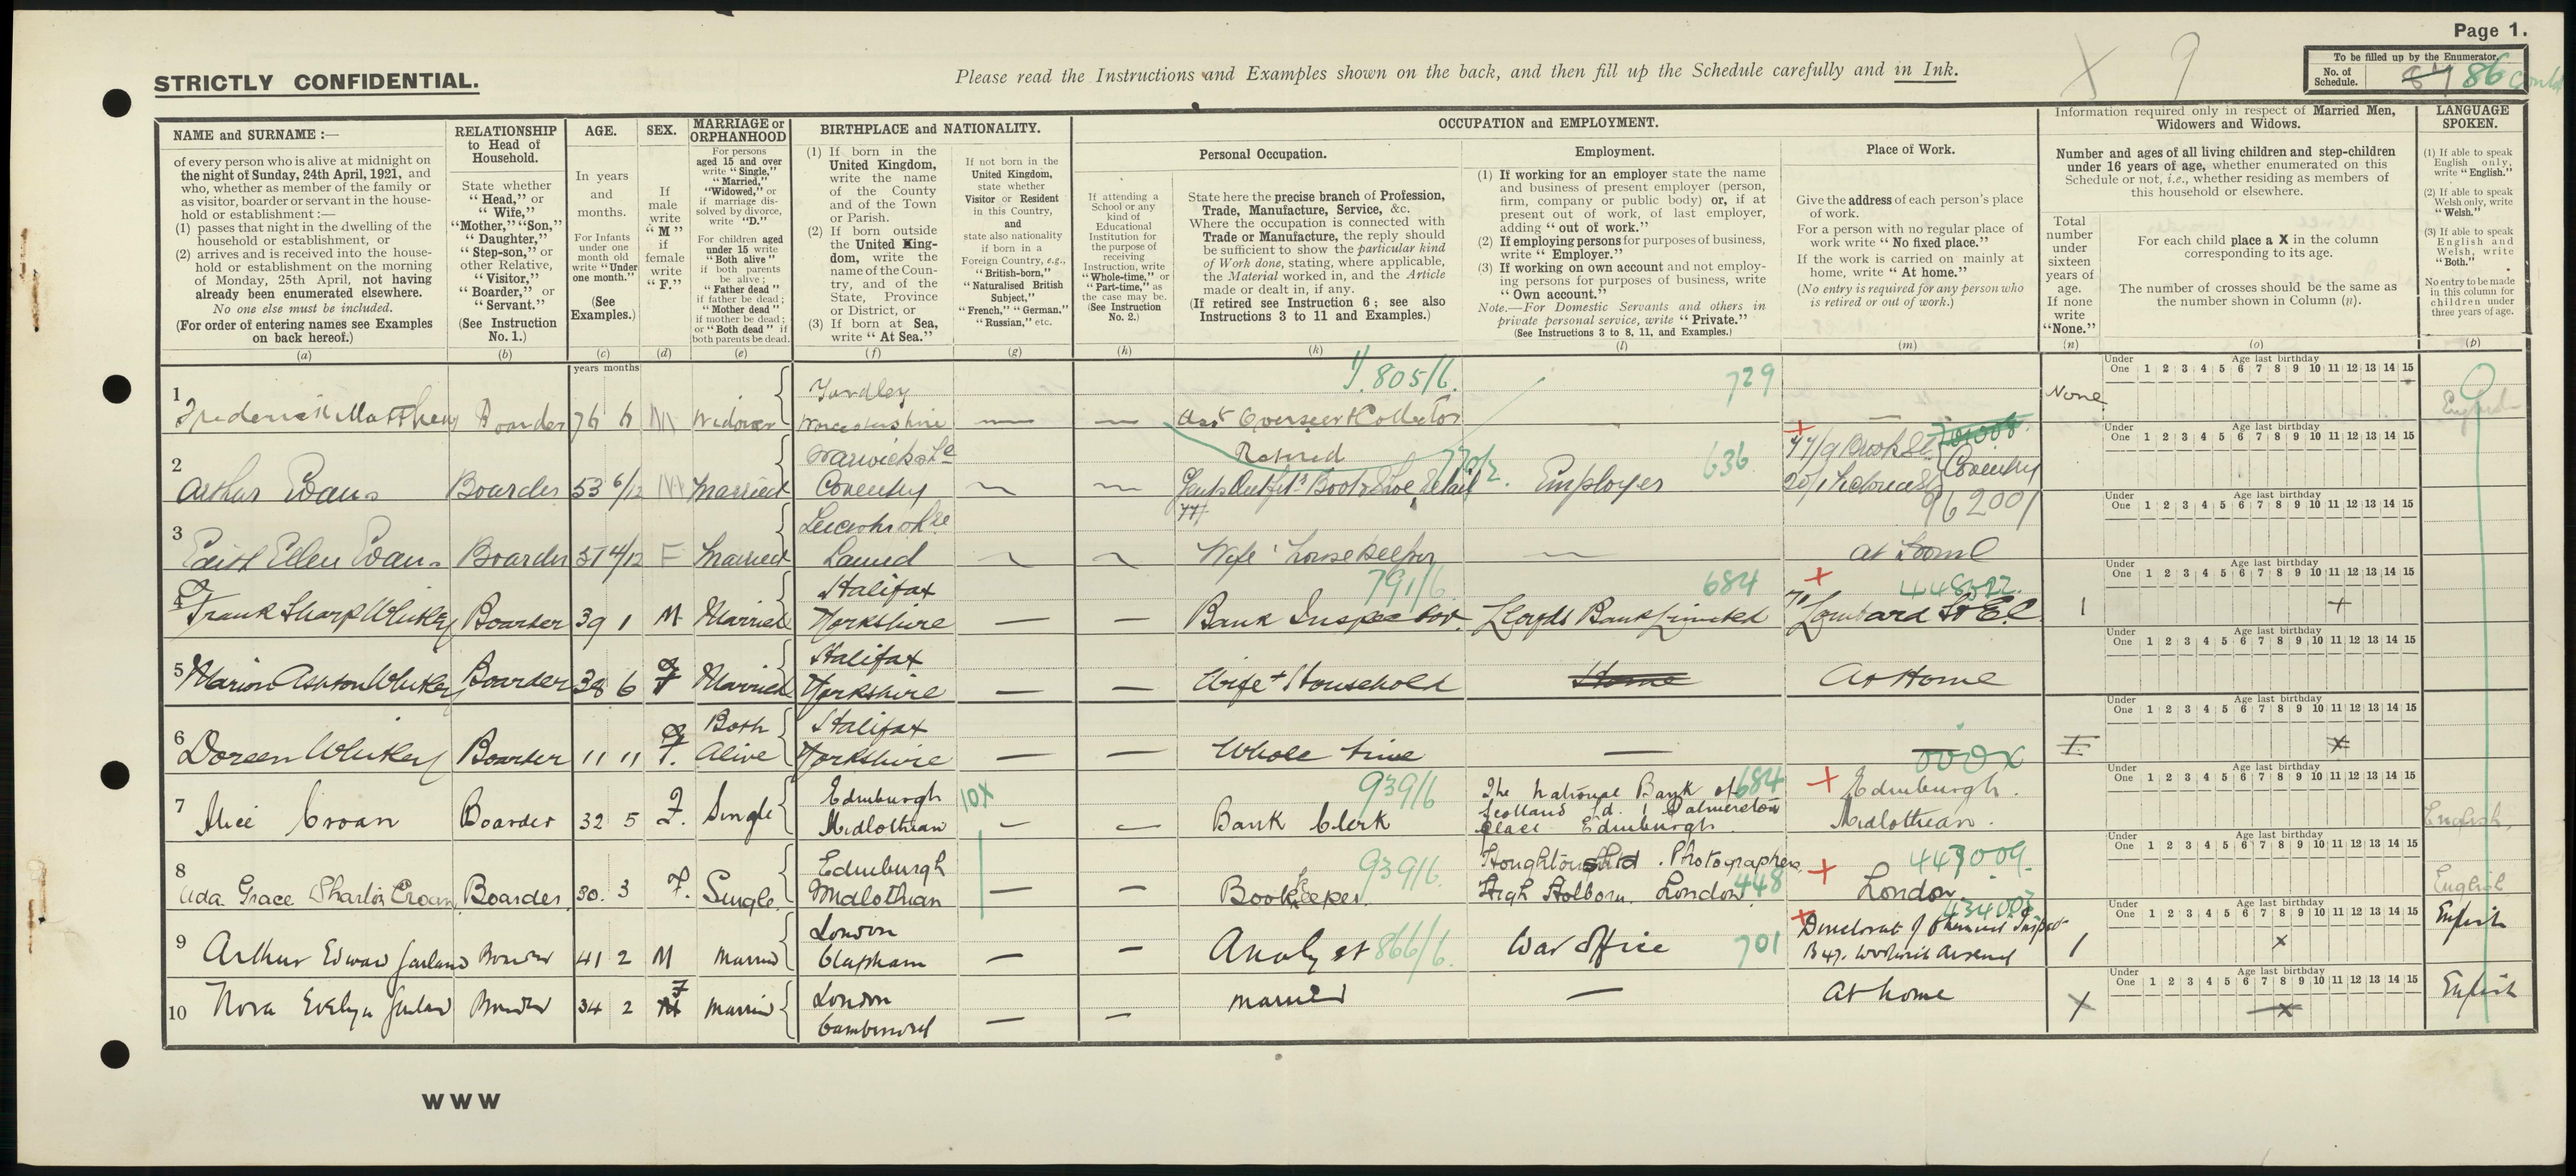 Page 1.
STRICTLY CONFIDENTIAL.
Please read the Instructions and Examples shown on the back, and then fill up the Schedule carefully and in Ink.
X 9
To be filled up by the Enumerator.
No. of Schedule. 87 86 contd
NAME and SURNAME :—
of every person who is alive at midnight on
the night of Sunday, 24th April, 1921, and
who, whether as member of the family or
as visitor, boarder or servant in the house-
hold or establishment :—
(1) passes that night in the dwelling of the
household or establishment, or
(2) arrives and is received into the house-
hold or establishment on the morning
of Monday, 25th April, not having
already been enumerated elsewhere.
No one else must be included.
(For order of entering names see Examples
on back hereof.)
(a)
RELATIONSHIP
to Head of
Household.
State whether
"Head," or
"Wife,"
"Mother," "Son,"
"Daughter,"
"Step-son," or
other Relative,
"Visitor,"
"Boarder," or
"Servant."
(See Instruction
No. 1.)
(b)
AGE.
In years
and
months.
For Infants
under one
month old
write "Under
one month."
(See
Examples.)
(c)
SEX.
If
male
write
"M"
if
female
write
"F."
(d)
MARRIAGE or
ORPHANHOOD
For persons
aged 15 and over
write "Single,"
"Married,"
"Widowed," or
if marriage dis-
solved by divorce,
write "D."
For children aged
under 15 write
"Both alive"
if both parents
be alive;
"Father dead"
if father be dead;
"Mother dead"
if mother be dead;
or "Both dead" if
both parents be dead.
(e)
BIRTHPLACE and NATIONALITY.
(1) If born in the
United Kingdom,
write the name
of the County
and of the Town
or Parish.
(2) If born outside
the United King-
dom, write the
name of the Coun-
try, and of the
State, Province
or District, or
(3) If born at Sea,
write "At Sea."
(f)
If not born in the
United Kingdom,
state whether
Visitor or Resident
in this Country,
and
state also nationality
if born in a
Foreign Country, e.g.,
"British-born,"
"Naturalised British
Subject,"
"French," "German,"
"Russian," etc.
(g)
OCCUPATION and EMPLOYMENT.
Personal Occupation.
If attending a
School or any
kind of
Educational
Institution for
the purpose of
receiving
Instruction, write
"Whole-time," or
"Part-time," as
the case may be.
(See Instruction
No. 2.)
(h)
State here the precise branch of Profession,
Trade, Manufacture, Service, &c.
Where the occupation is connected with
Trade or Manufacture, the reply should
be sufficient to show the particular kind
of Work done, stating, where applicable,
the Material worked in, and the Article
made or dealt in, if any.
(If retired see Instruction 6; see also
Instructions 3 to 11 and Examples.)
(k)
Employment.
(1) If working for an employer state the name
and business of present employer (person,
firm, company or public body) or, if at
present out of work, of last employer,
adding "out of work."
(2) If employing persons for purposes of business,
write "Employer."
(3) If working on own account and not employ-
ing persons for purposes of business, write
"Own account."
Note.—For Domestic Servants and others in
private personal service, write "Private."
(See Instructions 3 to 8, 11, and Examples.)
(l)
Place of Work.
Give the address of each person's place
of work.
For a person with no regular place of
work write "No fixed place."
If the work is carried on mainly at
home, write "At home."
(No entry is required for any person who
is retired or out of work.)
(m)
Information required only in respect of Married Men,
Widowers and Widows.
Number and ages of all living children and step-children
under 16 years of age, whether enumerated on this
Schedule or not, i.e., whether residing as members of
this household or elsewhere.
Total
number
under
sixteen
years of
age.
If none
write
"None."
(n)
For each child place a X in the column
corresponding to its age.
The number of crosses should be the same as
the number shown in Column (n).
(o)
LANGUAGE
SPOKEN.
(1) If able to speak
English only,
write "English."
(2) If able to speak
Welsh only, write
"Welsh."
(3) If able to speak
English and
Welsh, write
"Both."
No entry to be made
in this column for
children under
three years of age.
(p)
years months
Under One 1 2 3 4 5 6 7 8 9 10 11 12 13 14 15
Age last birthday
1 Frederick Matthews Boarder 76 6 M Widower Yardley Worcestershire — — Asst Overseer & Collector Retired 805/6 729 — None English
2 Arthur Evans Boarder 53 6/12 M Married Warwicksre Coventry Gents Outfitr Boot & Shoe Retail 770/2 Employer 636 Coventry
3 Edith Ellen Evans Boarder 51 4/12 F Married Wife housekeeper — at Home 962001
4 Frank Sharp Whitley Boarder 39 1 M Married Halifax Yorkshire — — Bank Inspector 791/6 Lloyds Bank Limited 684 71 Lombard St E.C. 448522 1 +
5 Marion Ashton Whitley Boarder 38 6 F Married Halifax Yorkshire — — Wife + Household Home At Home
6 Doreen Whitley Boarder 11 11 F. Both Alive Halifax Yorkshire — — Whole time — — 000X I X
7 Alice Croan Boarder 32 5 F. Single Edinburgh Midlothian 10X — — Bank Clerk 939/6 The National Bank of Scotland Ld. 1 Palmerston Place Edinburgh 684 + Edinburgh. Midlothian. English
8 Ada Grace Croan Boarder 30. 3 F. Single Edinburgh Midlothian — — Bookkeeper 939/6 Houghtons Ltd. Photographers High Holborn. London 448 + London 447009 English
9 Arthur Edward Garland Boarder 41 2 M Married London Clapham — — Analyst 866/6 War Office 701 Directorate of Chemical Inspect B47. Woolwich Arsenal 1 x English
10 Nora Evelyn Garland Boarder 34 2 F Married London Camberwell — — married — At home X x English
WWW